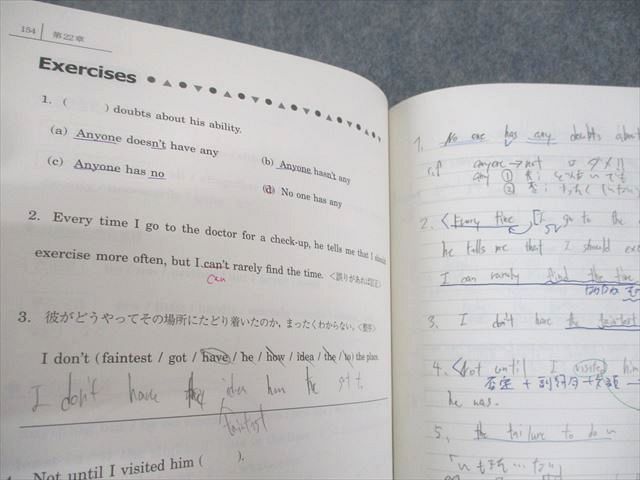 184 第22章
Exercises
1. ( ) doubts about his ability.
(a) Anyone doesn't have any
(b) Anyone hasn't any
(c) Anyone has no
(d) No one has any
2. Every time I go to the doctor for a check-up, he tells me that I should
exercise more often, but I can't rarely find the time. <誤りがあれば訂正>
can
3. 彼がどうやってその場所にたどり着いたのか、まったくわからない。<整序>
I don't (faintest / got / have / he / how / idea / the / to) the place.
I don't have the idea how he got to
faintest
Not until I visited him ( ).
1. No one has any doubts about
cf anyone → not
any ①
②
2. <Every time [I go to the
he tells me that I should
I can rarely find the time
3. I don't have the faintest
4. <Not until I visited him
否定 + 副詞句
he was.
5. the failure to do